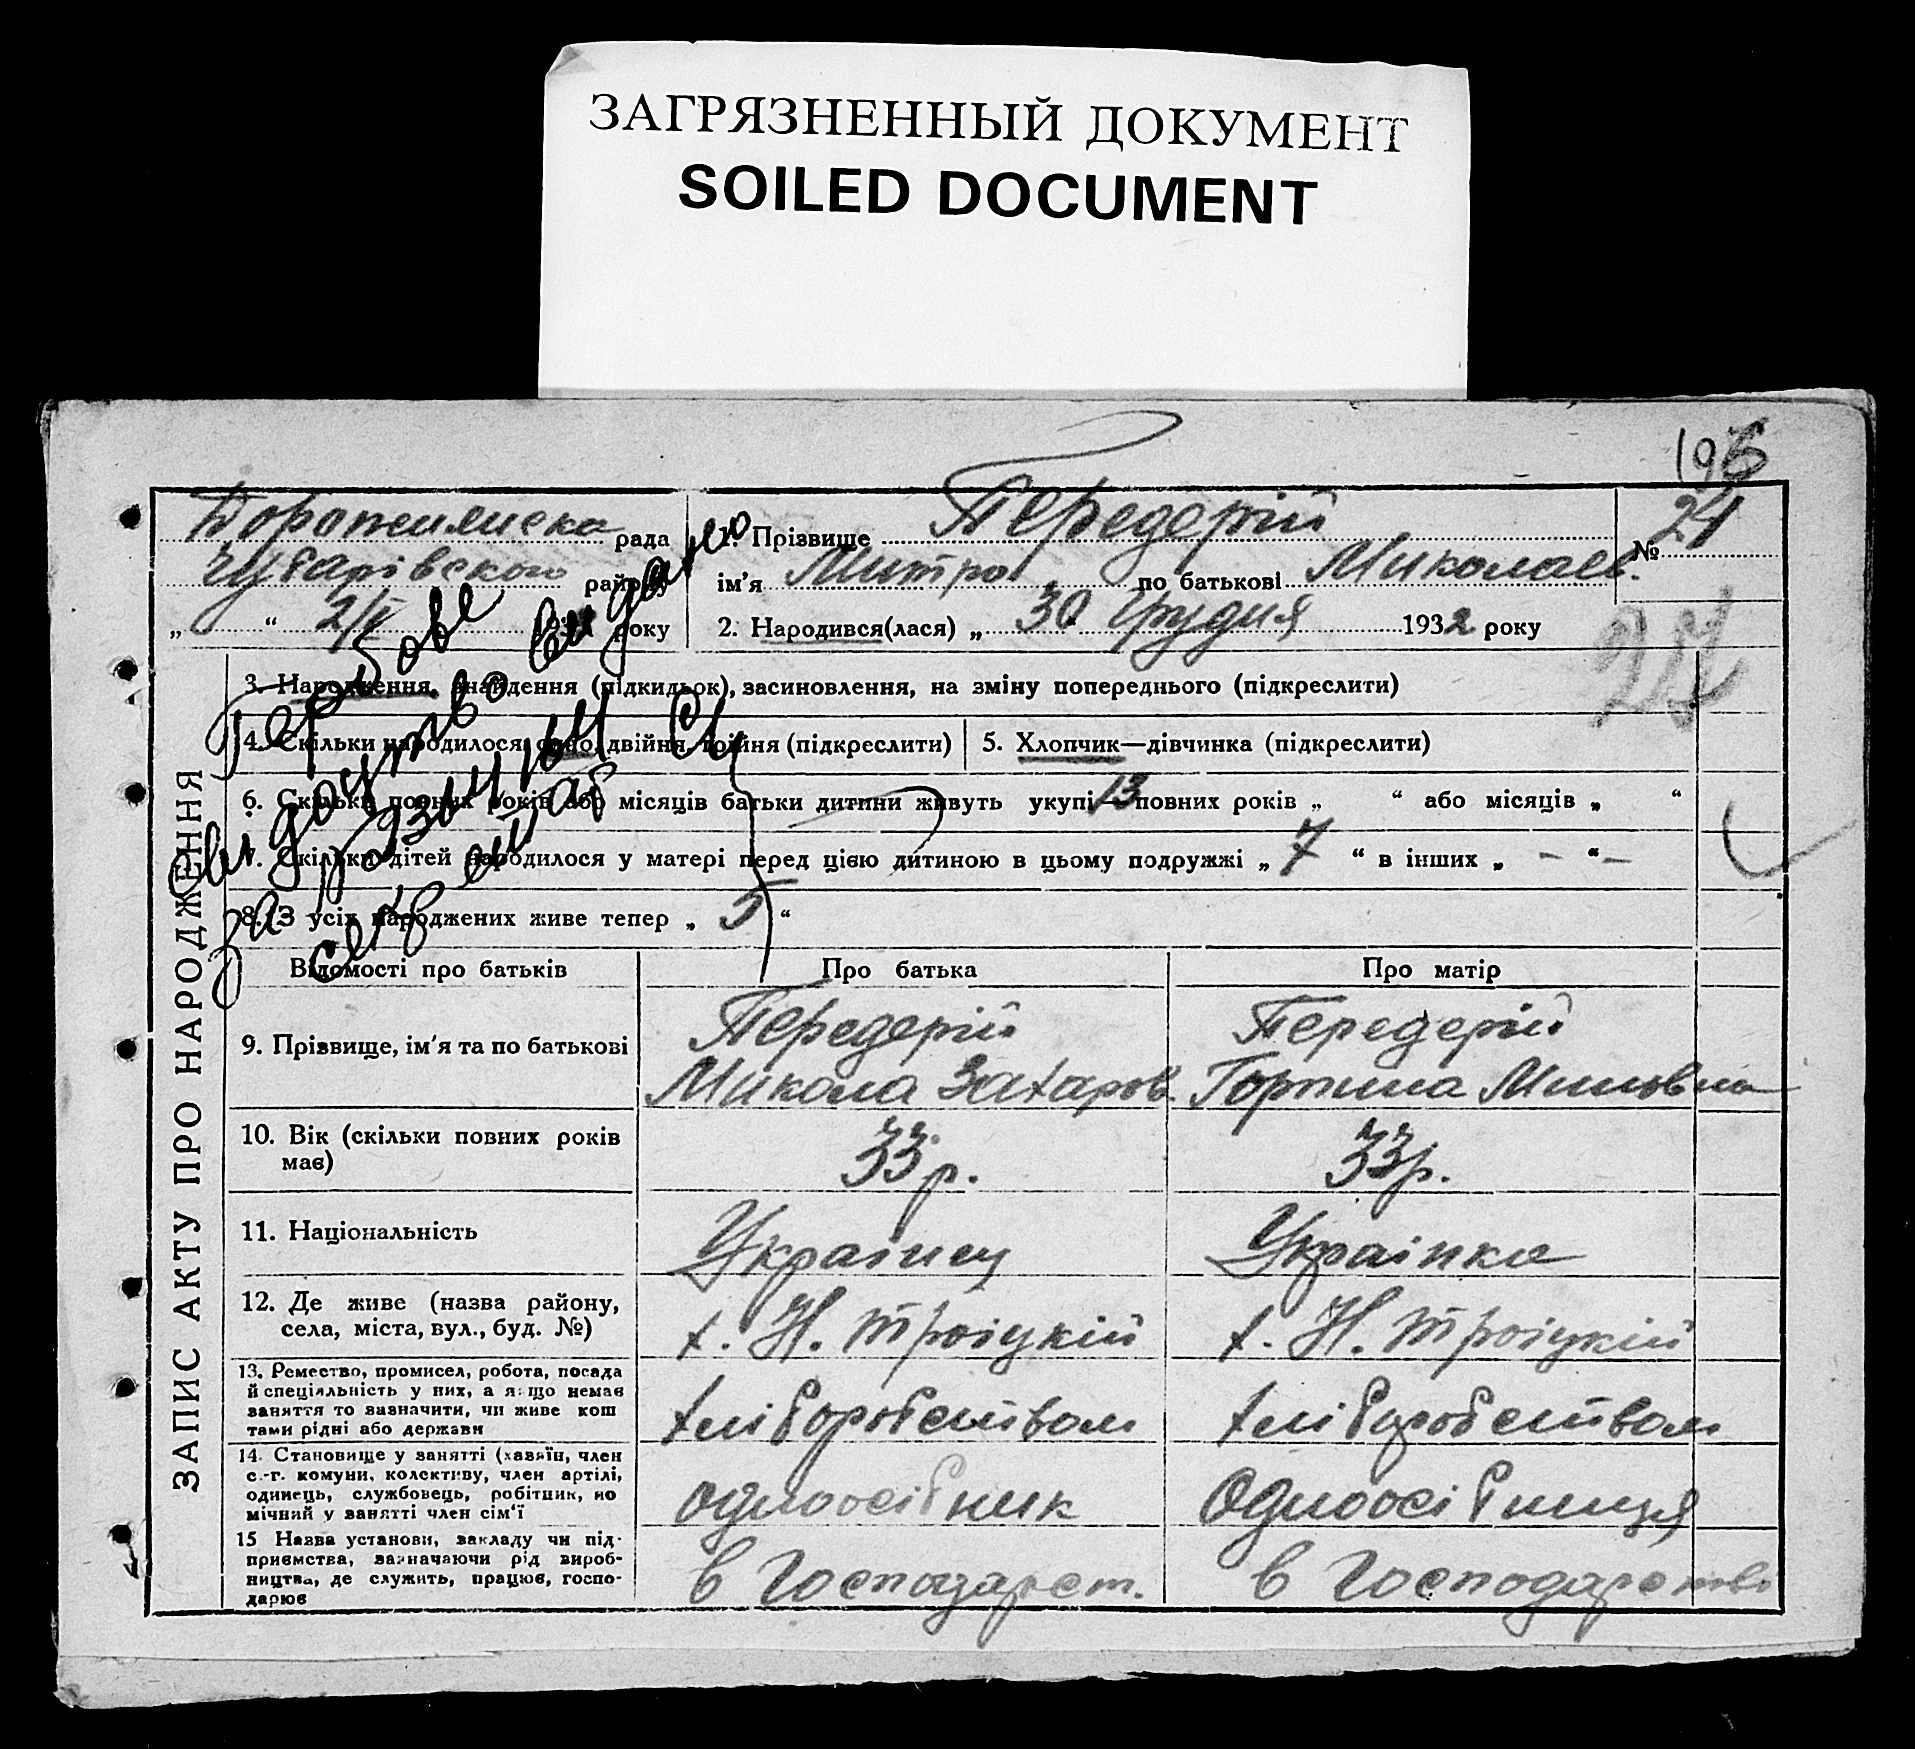 ЗАГРЯЗНЕННЫЙ ДОКУМЕНТ
SOILED DOCUMENT
196
рада
Чубарівського району
„ 2/IV “ 193 року
1. Прізвище Передерій
№ 24
ім'я Митро по батькові Миколаєв.
2. Народився(лася) „ 30 Грудня 1932 року
24
3. Народження, знайдення (підкидьок), засиновлення, на зміну попереднього (підкреслити)
4. Скільки народилося: одно, двійня, трійня (підкреслити)
5. Хлопчик—дівчинка (підкреслити)
6. Скільки повних років або місяців батьки дитини живуть укупі— 13 повних років „ “ або місяців „ “
7. Скільки дітей народилося у матері перед цією дитиною в цьому подружжі „ 7 “ в інших „ – “ –
8. З усіх народжених живе тепер „ 5 “
Гербове
свидоцтво видано
за
секр
ЗАПИС АКТУ ПРО НАРОДЖЕННЯ
Відомості про батьків
Про батька
Про матір
9. Прізвище, ім'я та по батькові
Передерій
Микола Захаров.
Передерій
Горпина
10. Вік (скільки повних років
має)
33 р.
33 р.
11. Національність
Українец
Українка
12. Де живе (назва району,
села, міста, вул., буд. №)
х. Н. Троіцкій
х. Н. Троіцкій
13. Ремество, промисел, робота, посада
й спеціяльність у них, а якщо немає
заняття то зазначити, чи живе кош
тами рідні або держави
хліборобством
хліборобством
14. Становище у занятті (хазяїн, член
с.-г. комуни, колективу, член артілі,
одинець, службовець, робітник, по
мічний у занятті член сім'ї
одноосібник
Одноосібниця
15 Назва установи, закладу чи під-
приємства, зазначаючи рід вироб-
ництва, де служить, працює, госпо-
дарює
в Господарст.
в Господарство